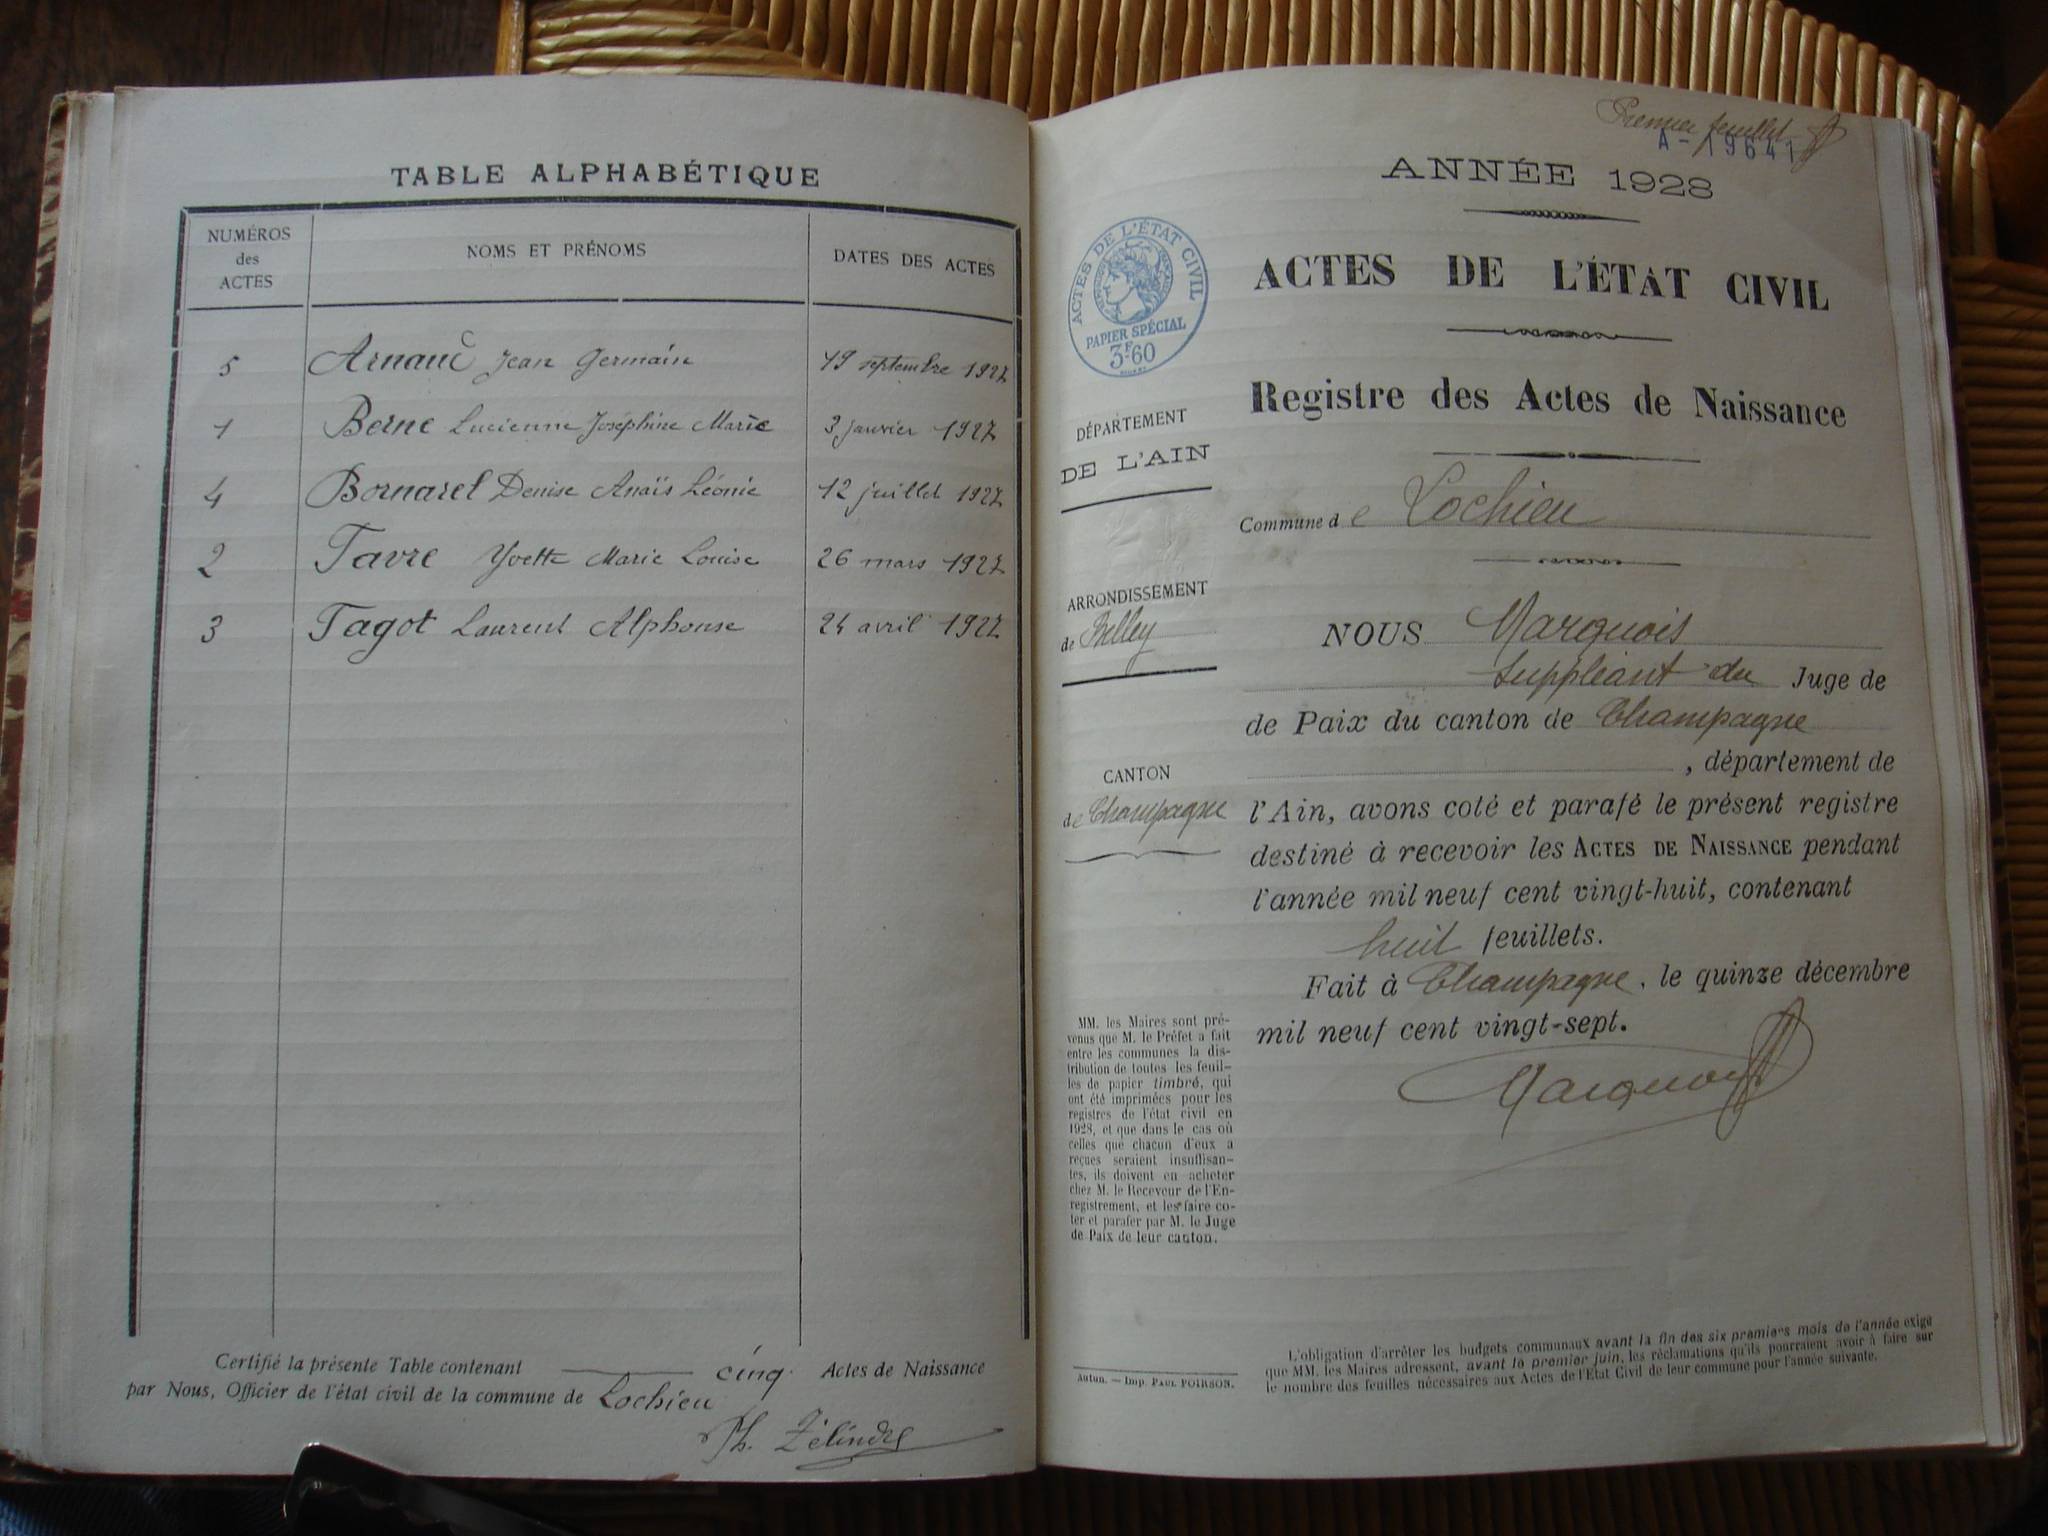 TABLE ALPHABÉTIQUE
NUMÉROS des ACTES
NOMS ET PRÉNOMS
DATES DES ACTES
5 Arnaud Jean Germain 19 septembre 1927
1 Berne Lucienne Joséphine Marie 3 janvier 1927
4 Bornarel Denise Anaïs Léonie 12 juillet 1927
2 Favre Yvette Marie Louise 26 mars 1927
3 Fagot Laurent Alphonse 24 avril 1927
Certifié la présente Table contenant cinq Actes de Naissance
par Nous, Officier de l'état civil de la commune de Lochieu
Ph. Zélindre
Premier feuillet
A-19641
ANNÉE 1928
ACTES DE L'ÉTAT CIVIL
PAPIER SPÉCIAL
3F.60
ACTES DE L'ÉTAT CIVIL
Registre des Actes de Naissance
DÉPARTEMENT
DE L'AIN
Commune de Lochieu
ARRONDISSEMENT
de Belley
CANTON
de Champagne
NOUS Marquois
Suppléant du Juge de
de Paix du canton de Champagne
, département de
l'Ain, avons coté et parafé le présent registre
destiné à recevoir les ACTES DE NAISSANCE pendant
l'année mil neuf cent vingt-huit, contenant
huit feuillets.
Fait à Champagne, le quinze décembre
mil neuf cent vingt-sept.
Marquois
MM. les Maires sont pré-
venus que M. le Préfet a fait
entre les communes la dis-
tribution de toutes les feuil-
les de papier timbré, qui
ont été imprimées pour les
registres de l'état civil en
1928, et que dans le cas où
celles que chacun d'eux a
reçues seraient insuffisan-
tes, ils doivent en acheter
chez M. le Receveur de l'En-
registrement, et les faire co-
ter et parafer par M. le Juge
de Paix de leur canton.
Autun. — Imp. PAUL POIRSON.
L'obligation d'arrêter les budgets communaux avant la fin des six premiers mois de l'année exige
que MM. les Maires adressent, avant le premier juin, les réclamations qu'ils pourraient avoir à faire sur
le nombre des feuilles nécessaires aux Actes de l'État Civil de leur commune pour l'année suivante.